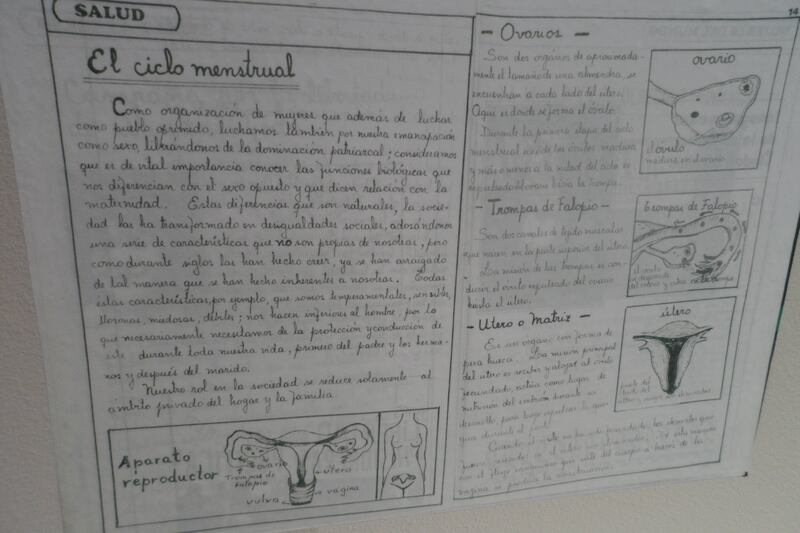 SALUD
El ciclo menstrual
Como organización de mujeres que además de luchar
como pueblo oprimido, luchamos también por nuestra emancipación
como sexo, librándonos de la dominación patriarcal; consideramos
que es de vital importancia conocer las funciones biológicas que
nos diferencian con el sexo opuesto y que dicen relación con la
maternidad. Estas diferencias que son naturales, la socie-
dad las ha transformado en desigualdades sociales, adosándonos
una serie de características que no son propias de nosotras, pero
como durante siglos las han hecho creer, ya se han arraigado
de tal manera que se han hecho inherentes a nosotras. Todas
estas características, por ejemplo, que somos temperamentales, sensibles,
lloronas, miedosas, débiles; nos hacen inferiores al hombre, por lo
que necesariamente necesitamos de la protección y conducción de
éste durante toda nuestra vida, primero del padre y los herma-
nos y después del marido.
Nuestro rol en la sociedad se reduce solamente al
ámbito privado del hogar y la familia.
Aparato
reproductor
ovario
Trompas de
Falopio
útero
vagina
vulva
14
- Ovarios -
Son dos órganos de aproximada-
mente el tamaño de una almendra, se
encuentran a cada lado del útero.
Aquí es donde se forma el óvulo.
Durante la primera etapa del ciclo
menstrual uno de los óvulos madura
y más o menos a la mitad del ciclo es
expulsado del ovario hacia la trompa.
ovario
el óvulo
madura en el ovario
- Trompas de Falopio -
Son dos canales de tejido muscular
que nacen en la parte superior del útero.
La misión de las trompas es con-
ducir el óvulo expulsado del ovario
hasta el útero.
trompas de Falopio
el óvulo
se desprende
del ovario y
- Utero o Matriz -
Es un órgano con forma de
pera hueca. La misión principal
del útero es recibir y alojar al óvulo
fecundado, actúa como lugar de
nutrición del embrión durante su
desarrollo, para luego
durante el parto.
útero
parte del
tejido del
útero y
Cuando el óvulo no ha sido fecundado, los elementos que
fueron creados en el útero son
con el flujo sanguíneo que sale del cuerpo a través de la
vagina se produce la menstruación.